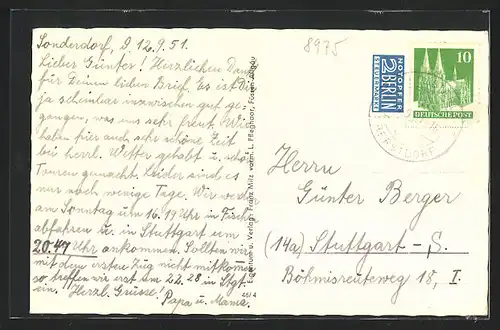 Sonderdorf, D. 12.9.51.
Lieber Günter! Herzlichen Dank
für Deinen lieben Brief. Es ist Dir
ja scheinbar inzwischen gut ge-
gangen, was uns sehr freut. Wir
haben hier auch sehr schöne Zeit
bei herrl. Wetter gehabt u. schöne
Touren gemacht. Leider sind es
nur noch wenige Tage. Wir werden
am Sonntag um 16.19 Uhr in Fischen
abfahren u. in Stuttgart um
20.47 Uhr ankommen. Sollten wir
mit dem ersten Zug nicht mitkommen
so treffen wir erst um 22.20 in Stgt.
ein. Herzl. Grüsse! Papa u. Mama.
4614
Eigentum u. Verlag: Franz Milz vorm. L. Pfleghaar, Füssen-Allgäu
8975
NOTOPFER
2 BERLIN
STEUERMARKE
10
DEUTSCHE POST
Herrn
Günter Berger
(14a) Stuttgart-S.
Böhmisreuteweg 18, I.